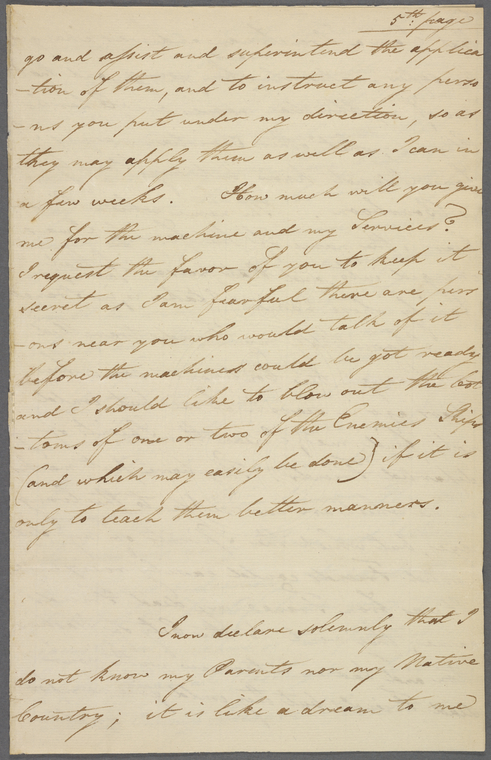 5th: page
go and assist and superintend the applica
-tion of them, and to instruct any perso
-ns you put under my direction, so as
they may apply them as well as I can in
a few weeks. How much will you give
me for the machine and my Services?
I request the favor of you to keep it
secret as I am fearful there are, pers
-ons near you who would talk of it
before the machines could be got ready
and I should like to blow out the bot
-toms of one or two of the Enemies Ships
(and which may easily be done) if it is
only to teach them better manners.
I now declare solemnly that I
do not know my Parents nor my Native
Country; it is like a dream to me